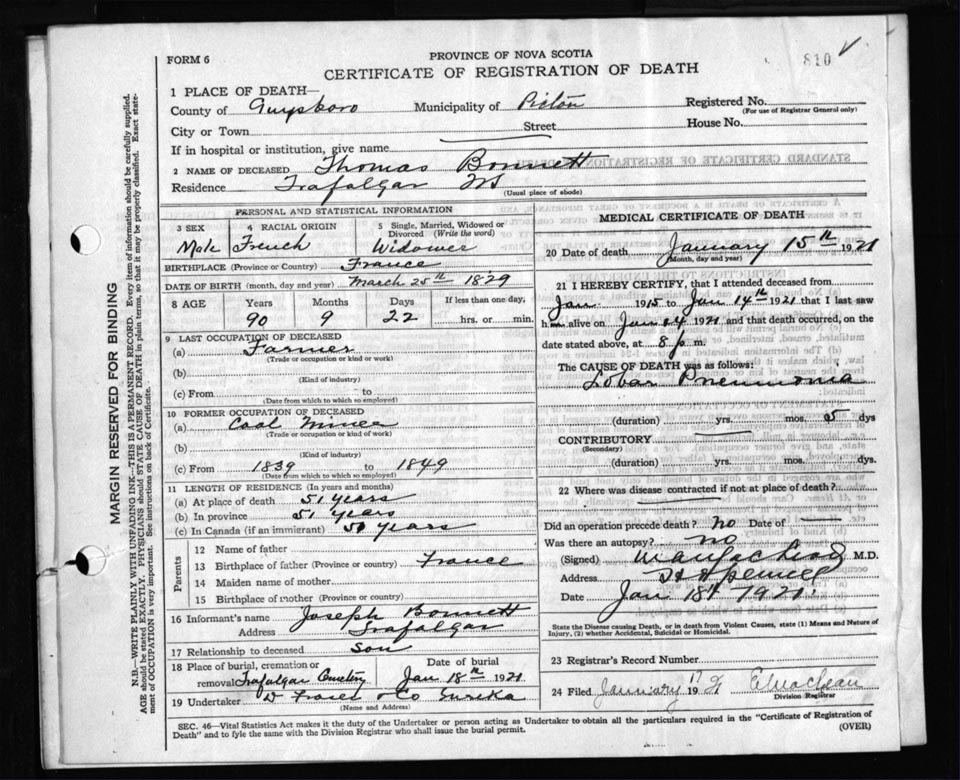 PROVINCE OF NOVA SCOTIA
810
FORM 6
CERTIFICATE OF REGISTRATION OF DEATH
1 PLACE OF DEATH—
County of Guysboro Municipality of Pictou Registered No.
(For use of Registrar General only)
City or Town Street House No.
If in hospital or institution, give name
2 NAME OF DECEASED Thomas Bonnett
Residence Trafalgar NS
(Usual place of abode)
PERSONAL AND STATISTICAL INFORMATION
3 SEX 4 RACIAL ORIGIN 5 Single, Married, Widowed or Divorced (Write the word)
Male French Widower
BIRTHPLACE (Province or Country) France
DATE OF BIRTH (month, day and year) March 25th 1829
8 AGE Years Months Days If less than one day,
90 9 22 hrs. or min.
9 LAST OCCUPATION OF DECEASED
(a) Farmer
(Trade or occupation or kind of work)
(b)
(Kind of industry)
(c) From to
(Date from which to which so employed)
10 FORMER OCCUPATION OF DECEASED
(a) Coal Miner
(Trade or occupation or kind of work)
(b)
(Kind of industry)
(c) From 1839 to 1849
(Date from which to which so employed)
11 LENGTH OF RESIDENCE (In years and months)
(a) At place of death 51 years
(b) In province 51 years
(c) In Canada (if an immigrant) years
Parents
12 Name of father
13 Birthplace of father (Province or country) France
14 Maiden name of mother
15 Birthplace of mother (Province or country)
16 Informant's name Joseph Bonnett
Address Trafalgar
17 Relationship to deceased son
18 Place of burial, cremation or removal Trafalgar Cemetery
Date of burial Jan 18th 1921
19 Undertaker W Fraser & Co Eureka
(Name and Address)
MEDICAL CERTIFICATE OF DEATH
20 Date of death January 15th 1921
(Month, day and year)
21 I HEREBY CERTIFY, that I attended deceased from
Jan. 1915 to Jan 14th 1921 that I last saw
him alive on Jan 14 1921 and that death occurred, on the
date stated above, at 8 p.m.
The CAUSE OF DEATH was as follows:
Lobar Pneumonia
(duration) yrs. mos. 5 dys
CONTRIBUTORY
(Secondary)
(duration) yrs. mos. dys.
22 Where was disease contracted if not at place of death?
Did an operation precede death? No Date of
Was there an autopsy? no
(Signed) M.D.
Address
Date Jan 18th 1921.
State the Disease causing Death, or in death from Violent Causes, state (1) Means and Nature of
Injury, (2) whether Accidental, Suicidal or Homicidal.
23 Registrar's Record Number
24 Filed January 17 192 E Maclean
Division Registrar
SEC. 46—Vital Statistics Act makes it the duty of the Undertaker or person acting as Undertaker to obtain all the particulars required in the "Certificate of Registration of
Death" and to fyle the same with the Division Registrar who shall issue the burial permit.
(OVER)
MARGIN RESERVED FOR BINDING
N.B.—WRITE PLAINLY WITH UNFADING INK—THIS IS A PERMANENT RECORD. Every item of information should be carefully supplied.
AGE should be stated EXACTLY. PHYSICIANS should STATE CAUSE OF DEATH in plain terms, so that it may be properly classified. Exact state-
ment of OCCUPATION is very important. See instructions on back of Certificate.